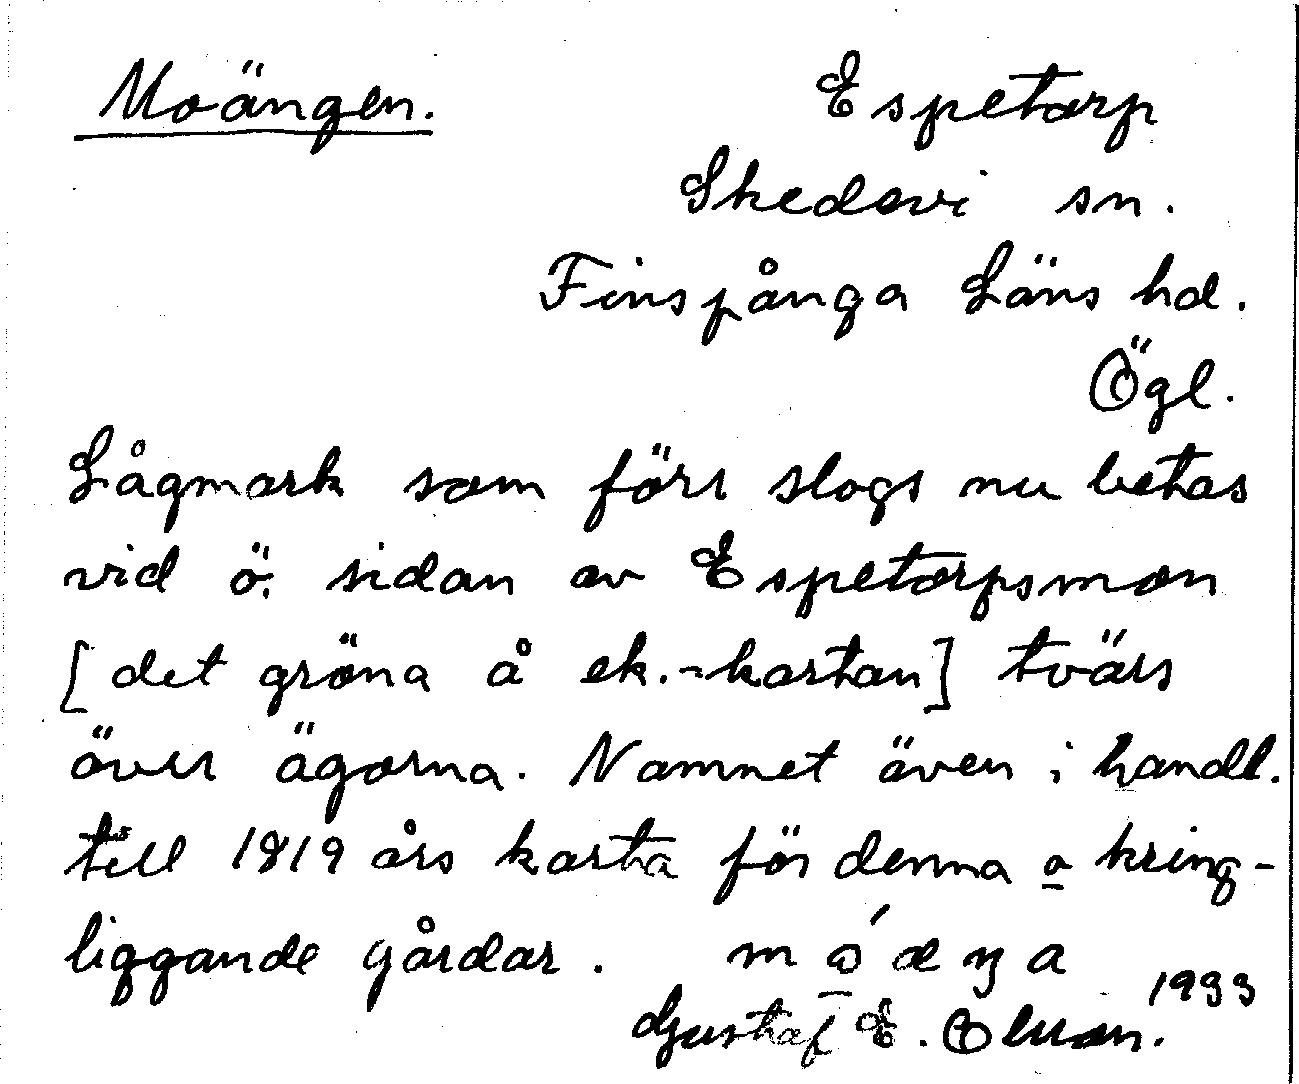 Moängen.
Espetorp
Skedevi sn.
Finspånga Läns hd.
Ögl.
Lågmark som förr slogs nu betas
vid ö. sidan av Espetorpsmon
[det gröna å ek.-kartan] tvärs
över ägorna. Namnet även i handl.
till 1819 års karta för denna o kring-
liggande gårdar.
1933
Gustaf E.